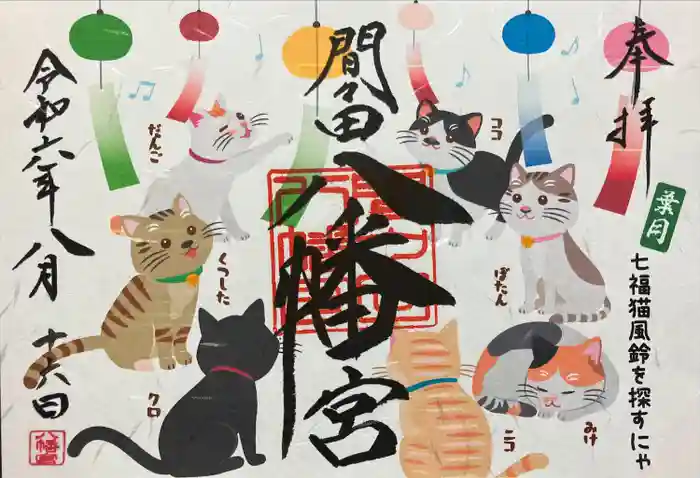 奉拝
葉月
七福猫風鈴を探すにゃ
間々田
八幡宮
令和六年八月
十六日
だんご
ココ
ぼたん
くつした
クロ
ニコ
みけ